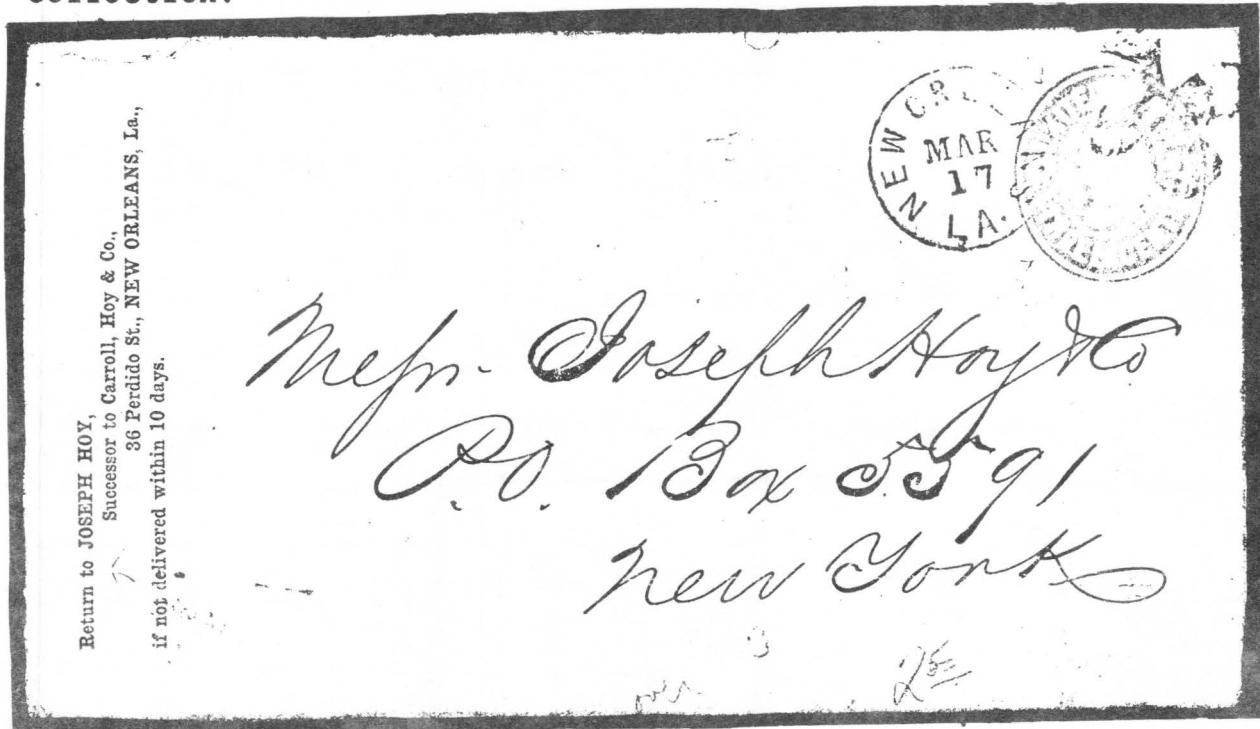 collection.
Return to JOSEPH HOY,
Successor to Carroll, Hoy & Co.,
36 Perdido St., NEW ORLEANS, La.,
if not delivered within 10 days.
NEW ORLE
MAR
17
LA.
Messrs. Joseph Hoy & Co
P.O. Box 5591
New York
over
2 50